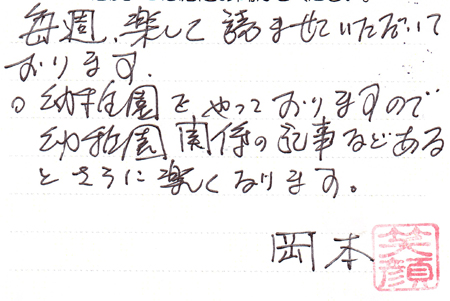 毎週、楽しく読ませていただいて
おります。
○幼稚園をやっておりますので
幼稚園関係の記事などある
とさらに楽しくなります。
岡本
笑顔